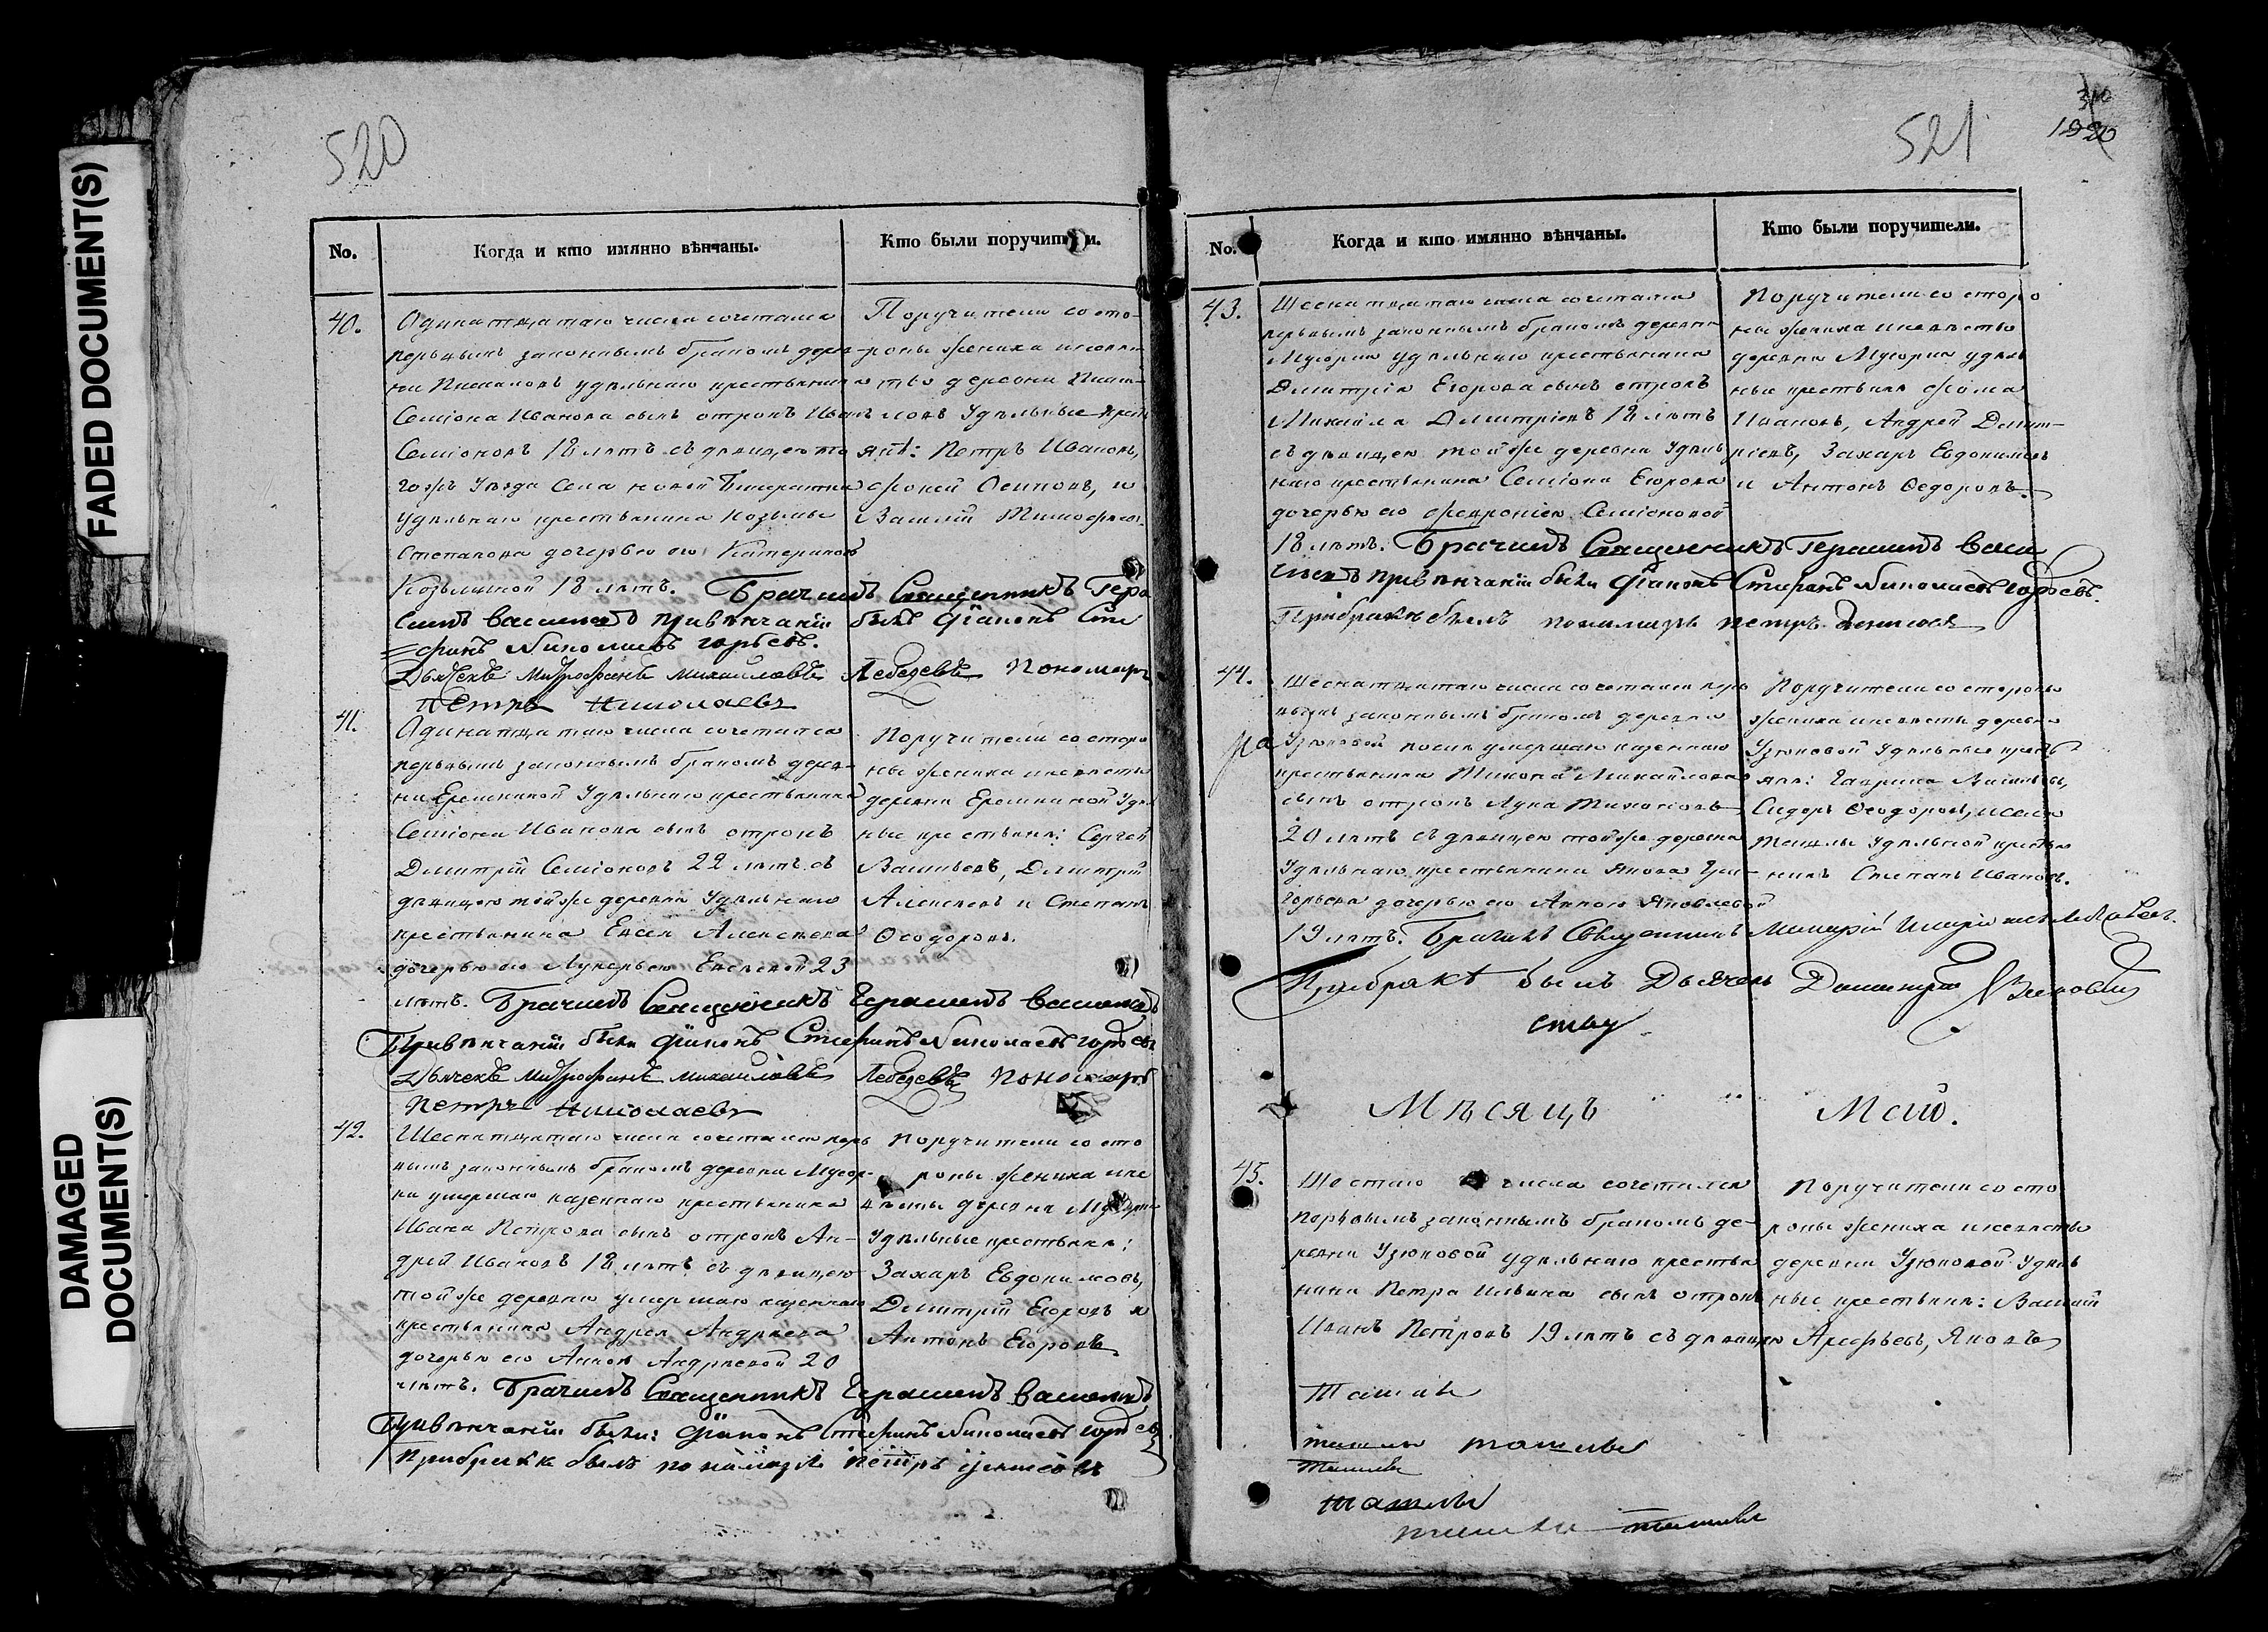 FADED DOCUMENT(S)
DAMAGED
DOCUMENT(S)
520
No.
Когда и кто имянно вѣнчаны.
Кто были поручит и.
40.
Одинатцатаго числа сочетался
первымъ законнымъ бракомъ дерев-
ни удѣльнаго крестьянина
Семіона Иванова сынъ отрокъ Иванъ
Семіоновъ 18 лѣтъ съ дѣвицею то
гожъ уѣзда села новой
удѣльнаго крестьянина Козьмы
Степанова дочерью его Катериною
Козьминой 18 лѣтъ. Брачилъ Священникъ Гера
симъ Васильевъ при вѣнчаніи былъ Діаконъ Сте
=фанъ Николаевъ
Дьячекъ Митрофанъ Михайловъ Лебедевъ Пономарь
Петръ Николаевъ
Поручители со сто-
роны жениха и невѣс
ты деревни
удѣльные крест
янѣ: Петръ Ивановъ,
Фокей Осиповъ, и
Василій Тимофѣев
41.
Одинатцатаго числа сочетался
первымъ законнымъ бракомъ дерев-
ни Еремкиной удѣльнаго крестьянина
Семіона Иванова сынъ отрокъ
Димитрій Семіоновъ 22 лѣтъ съ
дѣвицею той же деревни удѣльнаго
крестьянина Евсея Алексѣева
дочерью его Лукерьею Евсѣевой 23
лѣтъ. Брачилъ Священникъ Герасимъ Васильевъ
При вѣнчаніи были Діаконъ Стефанъ Николаевъ
Дьячекъ Митрофанъ Михайловъ Лебедевъ Пономарь
Петръ Николаевъ
Поручители со сторо
ны жениха и невѣсты
деревни Еремкиной удѣл
ные крестьянѣ: Сергей
Васильевъ, Димитрій
Алексѣевъ и Степанъ
Ѳеодоровъ.
42.
Шеснатцатаго числа сочетался перв
вымъ законнымъ бракомъ деревни Мусор-
ки умершаго казеннаго крестьянина
Ивана Петрова сынъ отрокъ Ан-
дрей Ивановъ 18 лѣтъ съ дѣвицею
той же деревни умершаго казеннаго
крестьянина Андрея Андрѣева
дочерью его Анною Андрѣевой 20
лѣтъ. Брачилъ Священникъ Герасимъ Васильевъ
При вѣнчаніи были: Діаконъ Стефанъ Николаевъ
При бракѣ былъ пономарь Петръ
Поручители со сто
роны жениха и не
вѣсты деревни Мусорки
удѣльные крестьянѣ:
Захаръ Евдокимовъ,
Димитрій Егоровъ и
Антонъ Егоровъ.
521
No.
Когда и кто имянно вѣнчаны.
Кто были поручители.
43.
Шеснатцатаго числа сочетался
первымъ законнымъ бракомъ деревни
Мусорки удѣльнаго крестьянина
Димитрія Егорова сынъ отрокъ
Михайла Димитріевъ 18 лѣтъ
съ дѣвицею той же деревни удѣль
наго крестьянина Семіона Егорова
дочерью его Февроніею Семіоновой
18 лѣтъ. Брачилъ Священникъ Герасимъ Васи
льевъ при вѣнчаніи были Діаконъ Стефанъ Николаевъ
При бракѣ былъ пономарь Петръ
Поручители со сторо
ны жениха и невѣсты
деревни Мусорки удѣль
ные крестьянѣ Фома
Ивановъ, Андрей Димит-
ріевъ, Захаръ Евдокимовъ
и Антонъ Ѳедоровъ.
44.
Шеснатцатаго числа сочетался перв
вымъ законнымъ бракомъ деревни
Узюковой умершаго казеннаго
крестьянина Тихона Михайлова
сынъ отрокъ Лука Тихоновъ
20 лѣтъ съ дѣвицею той же деревни
удѣльнаго крестьянина Якова Гри-
горьева дочерью его Анною Яковлевой
19 лѣтъ. Брачилъ Священникъ
При бракѣ былъ Дьячекъ Димитрій
Поручители со стороны
жениха и невѣсты деревни
Узюковой удѣльные кресть
янѣ: Гаврила Васильевъ,
Сидоръ Ѳеодоровъ, и села
Ташлы удѣльной крестья
нинъ Степанъ Ивановъ.
Мѣсяцъ Маій.
45.
Шестаго числа сочетался
первымъ законнымъ бракомъ де-
ревни Узюковой удѣльнаго крестья
нина Петра Ильина сынъ отрокъ
Иванъ Петровъ 19 лѣтъ съ дѣвицею
Поручители со сто
роны жениха и невѣсты
деревни Узюковой удѣль
ные крестьянѣ: Василій
Арефьевъ, Яковъ